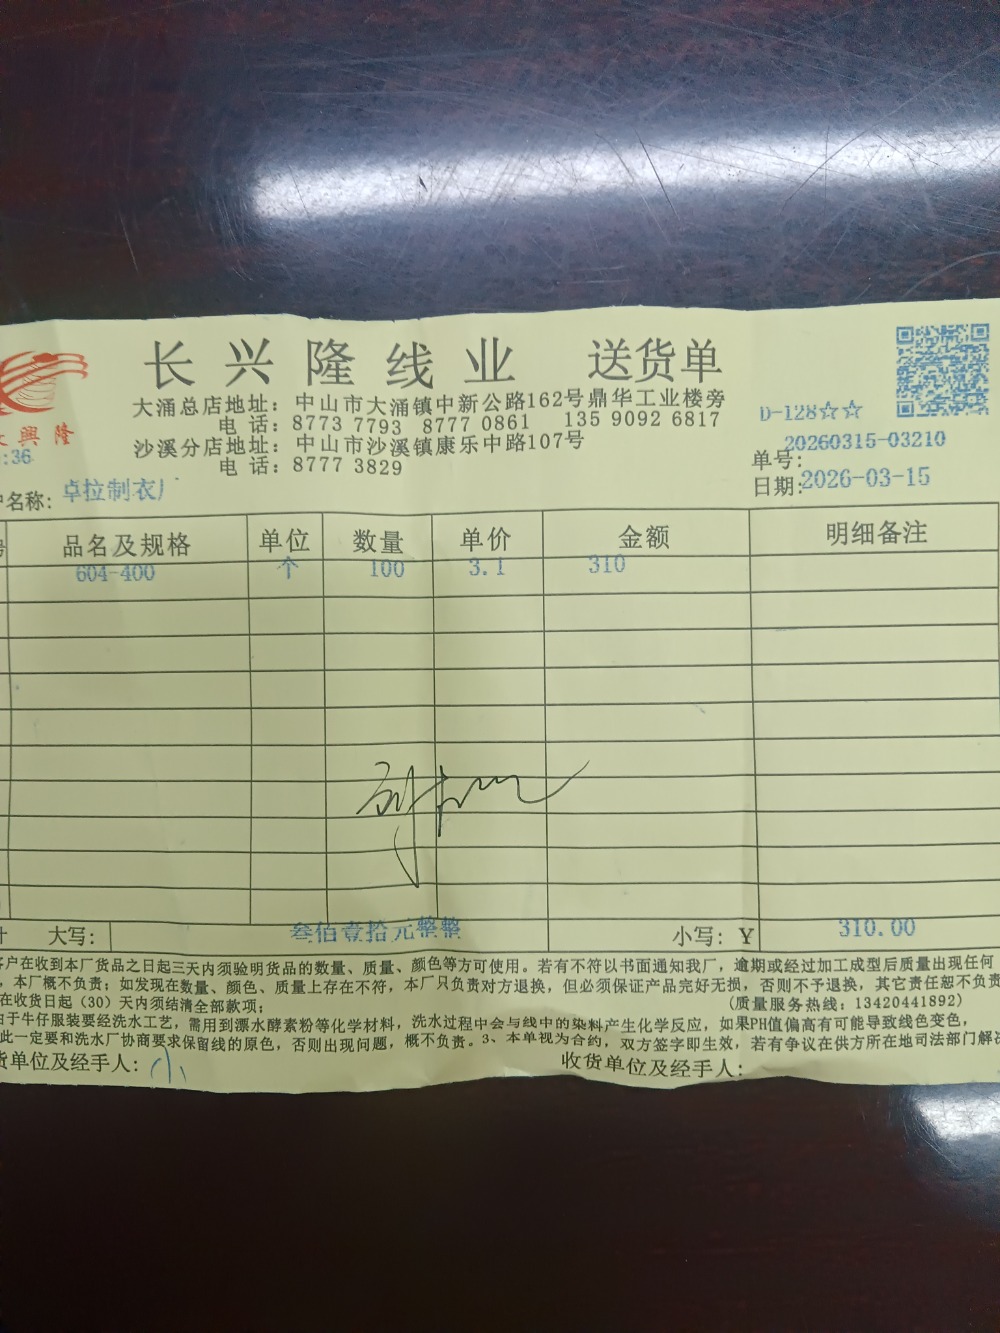 长兴隆线业 送货单
興隆
大涌总店地址：中山市大涌镇中新公路162号鼎华工业楼旁
电 话：8773 7793 8777 0861 135 9092 6817
沙溪分店地址：中山市沙溪镇康乐中路107号
电 话：8777 3829
D-128☆☆
:36
单号：20260315-03210
日期：2026-03-15
名称：卓拉制衣厂
品名及规格 单位 数量 单价 金额 明细备注
604-400 个 100 3.1 310
大写： 叁佰壹拾元整整 小写：Y 310.00
客户在收到本厂货品之日起三天内须验明货品的数量、质量、颜色等方可使用。若有不符以书面通知我厂，逾期或经过加工成型后质量出现任何
，本厂概不负责；如发现在数量、颜色、质量上存在不符，本厂只负责对方退换，但必须保证产品完好无损，否则不予退换，其它责任恕不负责
在收货日起（30）天内须结清全部款项； （质量服务热线：13420441892）
由于牛仔服装要经洗水工艺，需用到漂水酵素粉等化学材料，洗水过程中会与线中的染料产生化学反应，如果PH值偏高有可能导致线色变色，
此一定要和洗水厂协商要求保留线的原色，否则出现问题，概不负责。3、本单视为合约，双方签字即生效，若有争议在供方所在地司法部门解决
货单位及经手人： 收货单位及经手人：